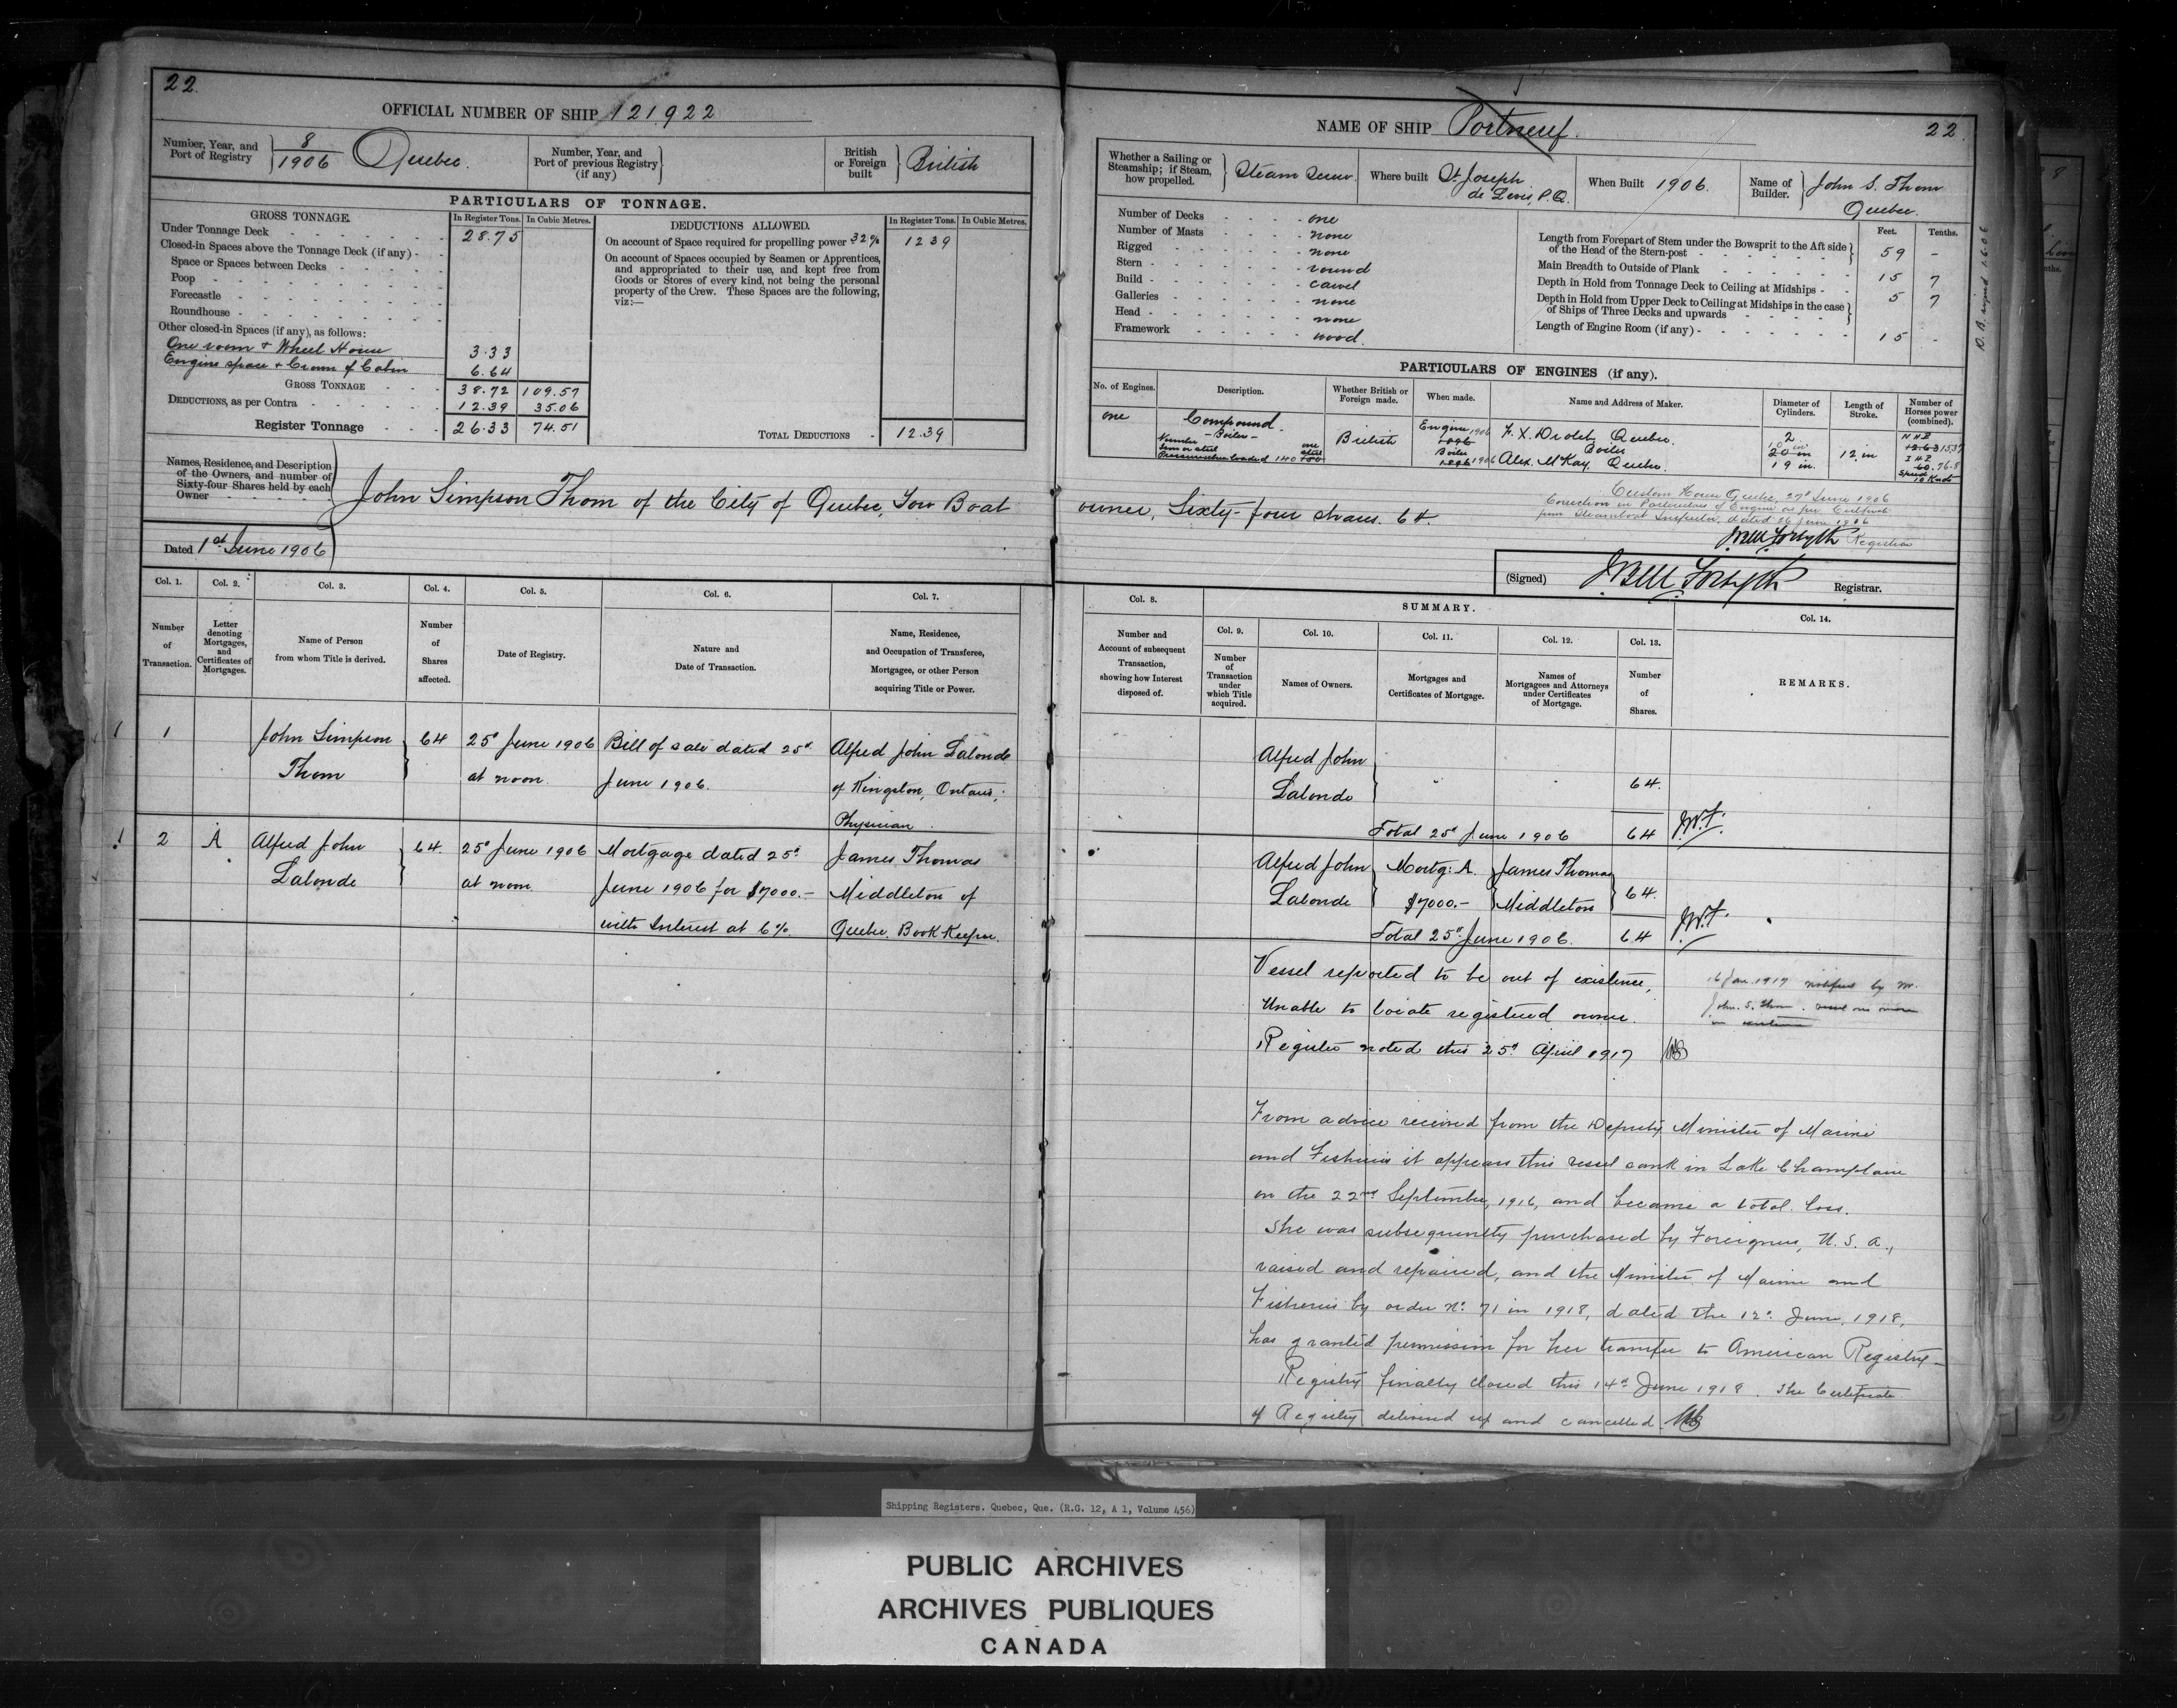 22.
OFFICIAL NUMBER OF SHIP 121922
Number, Year, and Port of Registry 8/1906 Quebec.
Number, Year, and Port of previous Registry (if any)
British or Foreign built British
PARTICULARS OF TONNAGE.
GROSS TONNAGE. In Register Tons. In Cubic Metres.
Under Tonnage Deck 28.75
Closed-in Spaces above the Tonnage Deck (if any)
Space or Spaces between Decks
Poop
Forecastle
Roundhouse
Other closed-in Spaces (if any), as follows:
One room + Wheel House 3.33
Engine space + Crown of Cabin 6.64
GROSS TONNAGE 38.72 109.57
DEDUCTIONS, as per Contra 12.39 35.06
Register Tonnage 26.33 74.51
DEDUCTIONS ALLOWED. In Register Tons. In Cubic Metres.
On account of Space required for propelling power 32% 12 39
On account of Spaces occupied by Seamen or Apprentices,
and appropriated to their use, and kept free from
Goods or Stores of every kind, not being the personal
property of the Crew. These Spaces are the following,
viz:—
TOTAL DEDUCTIONS 12.39
Names, Residence, and Description
of the Owners, and number of
Sixty-four Shares held by each
Owner
John Simpson Thom of the City of Quebec, Tow Boat
Dated 1st June 1906
Col. 1. Col. 2. Col. 3. Col. 4. Col. 5. Col. 6. Col. 7.
Number of Transaction.
Letter denoting Mortgages, and Certificates of Mortgages.
Name of Person from whom Title is derived.
Number of Shares affected.
Date of Registry.
Nature and Date of Transaction.
Name, Residence, and Occupation of Transferee, Mortgagee, or other Person acquiring Title or Power.
1 1 John Simpson 64 25th June 1906 Bill of sale dated 25th Alfred John Lalonde
Thom at noon June 1906. of Kingston, Ontario;
Physician.
2 A Alfred John 64. 25th June 1906 Mortgage dated 25th James Thomas
Lalonde at noon June 1906 for $7000.— Middleton of
with Interest at 6%. Quebec. Book Keeper.
NAME OF SHIP Portneuf.
22.
Whether a Sailing or Steamship; if Steam, how propelled. Steam Screw.
Where built St. Joseph de Levis, P.Q.
When Built 1906.
Name of Builder. John S. Thom Quebec.
Number of Decks one
Number of Masts none
Rigged none
Stern round
Build carvel
Galleries none
Head none
Framework wood.
Feet. Tenths.
Length from Forepart of Stem under the Bowsprit to the Aft side of the Head of the Stern-post 59 -
Main Breadth to Outside of Plank 15 7
Depth in Hold from Tonnage Deck to Ceiling at Midships 5 7
Depth in Hold from Upper Deck to Ceiling at Midships in the case of Ships of Three Decks and upwards
Length of Engine Room (if any) 15 -
PARTICULARS OF ENGINES (if any).
No. of Engines. Description. Whether British or Foreign made. When made. Name and Address of Maker. Diameter of Cylinders. Length of Stroke. Number of Horses power (combined).
one Compound. British Engine 1906 F. X. Drolet, Quebec. 2
Boiler 1906 Boiler Alex. McKay, Quebec. 20 in 19 in. 12 in
owner, Sixty-four shares. 64.
Custom House Quebec, 27th June 1906
Correction in Particulars of Engine as per Certificate
from Steamboat Inspector, dated 26 June 1906
J.Bell Forsyth Registrar
(Signed) J.Bell Forsyth Registrar.
Col. 8. SUMMARY. Col. 14.
Col. 9. Col. 10. Col. 11. Col. 12. Col. 13.
Number and Account of subsequent Transaction, showing how Interest disposed of.
Number of Transaction under which Title acquired.
Names of Owners.
Mortgages and Certificates of Mortgage.
Names of Mortgagees and Attorneys under Certificates of Mortgage.
Number of Shares.
REMARKS.
Alfred John
Lalonde 64.
Total 25th June 1906 64
Alfred John Mortg: A. James Thomas
Lalonde $7000.— Middleton 64.
Total 25th June 1906. 64
Vessel reported to be out of existence,
Unable to locate registered owner.
Register noted this 25th April 1917
16 Jan. 1917 notified by Mr.
John S. Thom
From advice received from the Deputy Minister of Marine
and Fisheries it appears this vessel sank in Lake Champlain
on the 22nd September, 1916, and became a total loss.
She was subsequently purchased by Foreigners, U.S.A.,
raised and repaired, and the Minister of Marine and
Fisheries by order No. 71 in 1918, dated the 12th June, 1918,
has granted permission for her transfer to American Registry—
Registry finally closed this 14th June 1918. The Certificate
of Registry delivered up and cancelled.
Shipping Registers. Quebec, Que. (R.G. 12, A 1, Volume 456)
PUBLIC ARCHIVES
ARCHIVES PUBLIQUES
CANADA